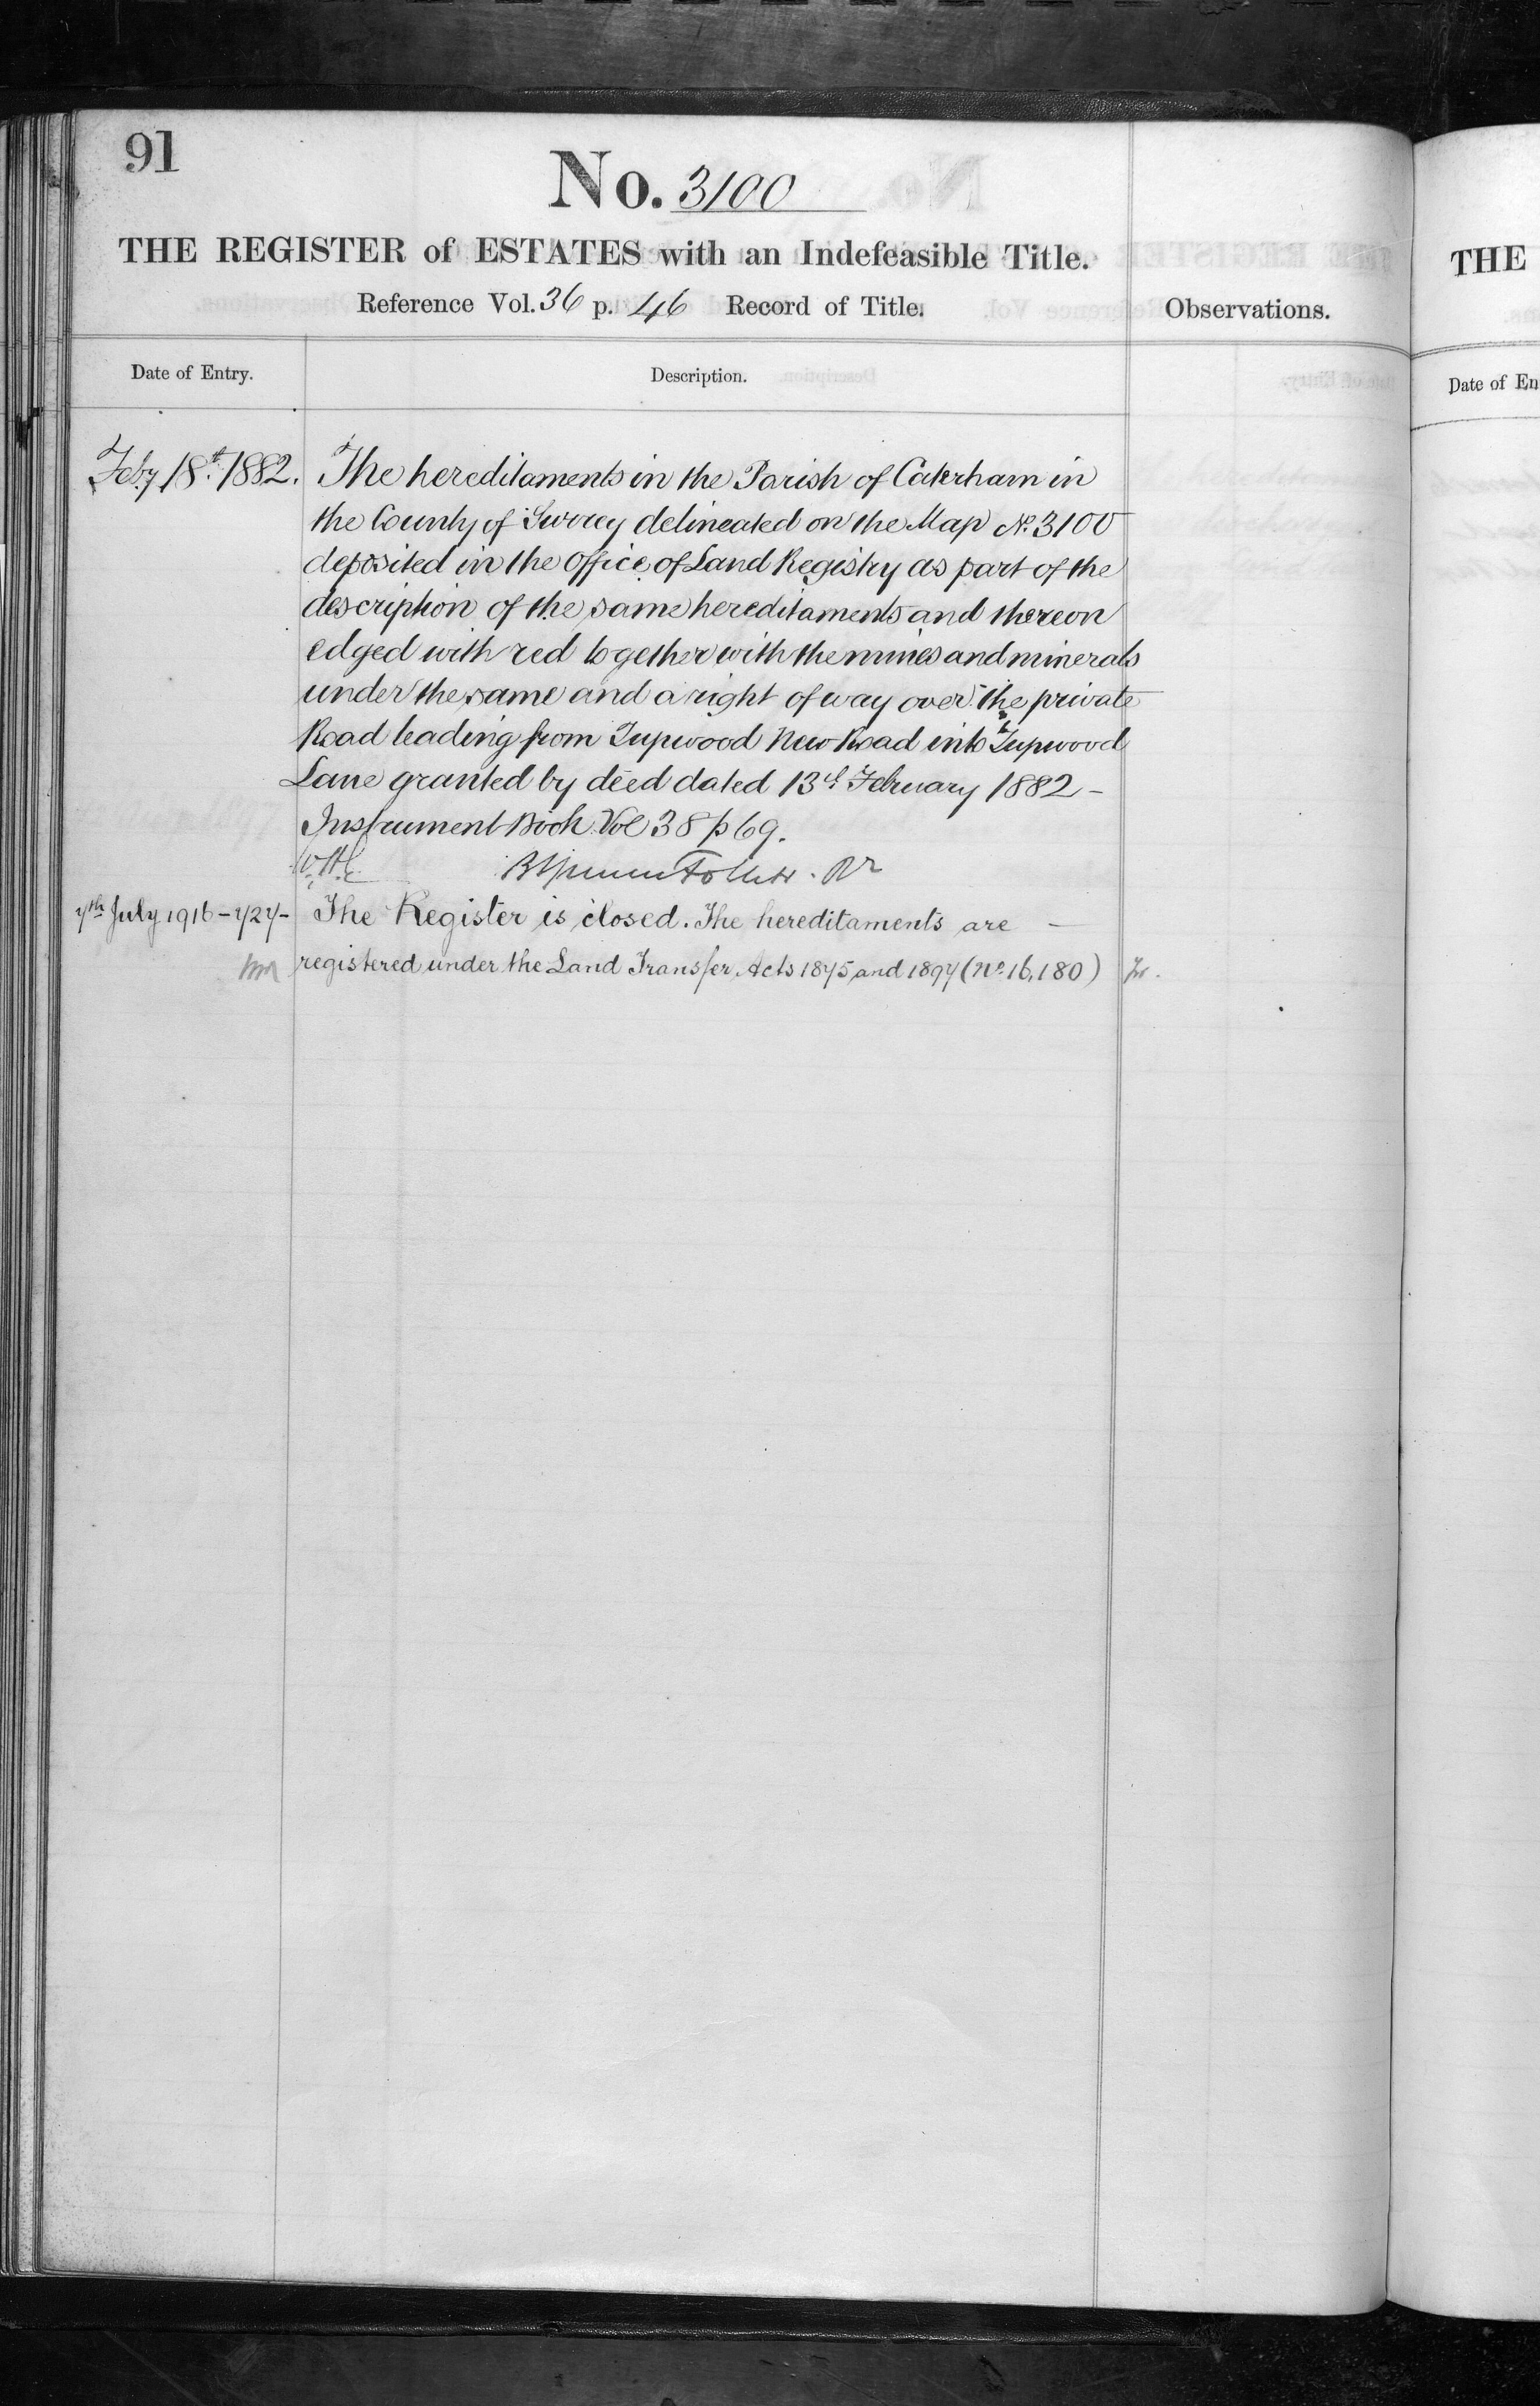 91
No. 3100
THE REGISTER of ESTATES with an Indefeasible Title.
Reference Vol. 36 p. 46 Record of Title.
Observations.
Date of Entry.
Description.
Feby 18th 1882.
The hereditaments in the Parish of Caterham in
the County of Surrey delineated on the Map No. 3100
deposited in the Office of Land Registry as part of the
description of the same hereditaments and thereon
edged with red together with the mines and minerals
under the same and a right of way over the private
Road leading from Tupwood New Road into Tupwood
Lane granted by deed dated 13th February 1882 -
Instrument Book Vol 38 p 69.
Follett. Rr
7th July 1916 - 727 -
The Register is closed. The hereditaments are -
registered under the Land Transfer Acts 1875 and 1897 (No. 16,180)
THE
Date of En